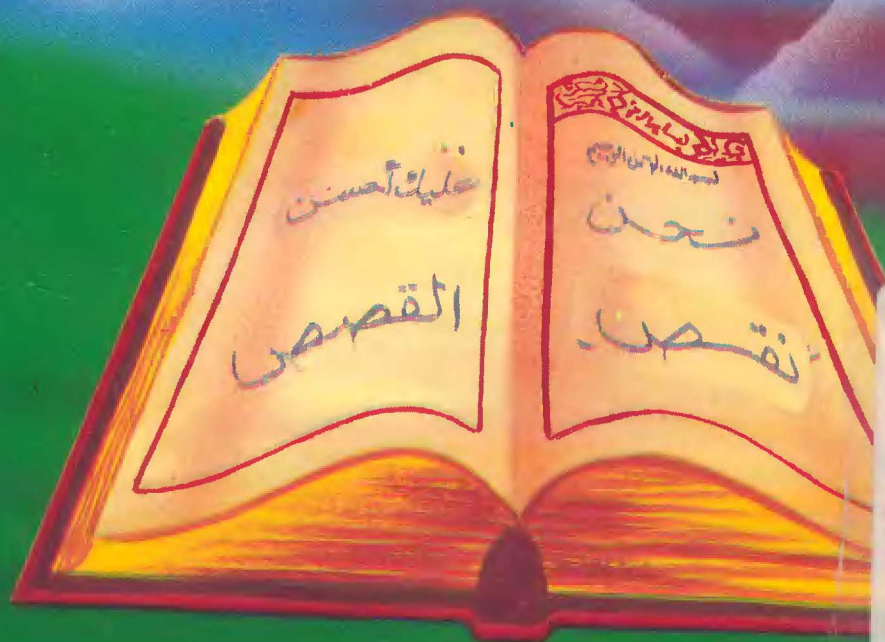 بسم الله الرحمن الرحيم
نحن
نقص
عليك أحسن
القصص